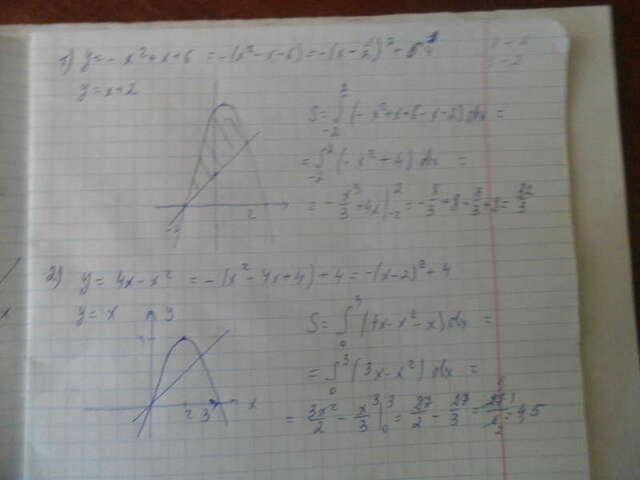 1) y = -x² + x + 6 = -(x² - x - 6) = -(x -
y = x + 2
S = ∫₋₂² (-x² + x + 6 - x - 2) dx =
= ∫₋₂² (-x² + 4) dx =
= -x³/3 + 4x |₋₂² = -8/3 + 8 - 8/3 + 8 =
-2 2
2) y = 4x - x² = -(x² - 4x + 4) + 4 = -(x - 2)² + 4
y = x
y
x
2 3
S = ∫₀³ (4x - x² - x) dx =
= ∫₀³ (3x - x²) dx =
= 3x²/2 - x³/3 |₀³ = 27/2 - 27/3 = = 4,5